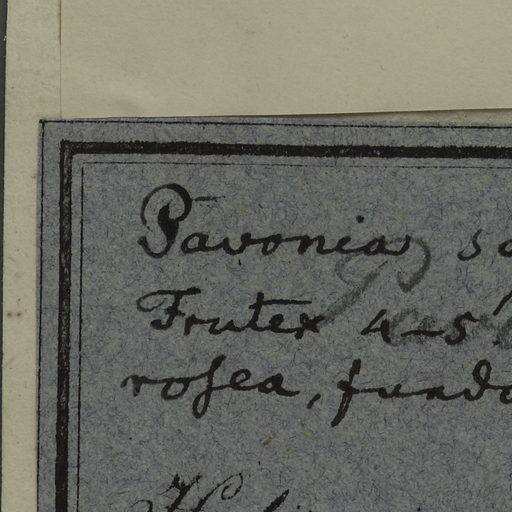 Pavonia
Frutex 4-5'
roſea, fundo